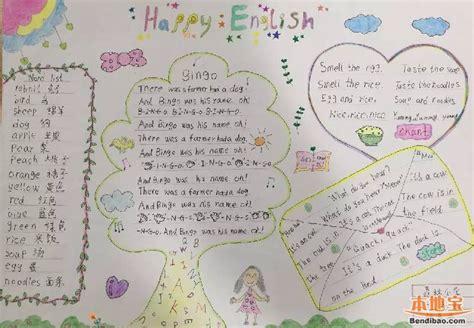 Happy English
Word list
rabbit 兔子
bird 鸟
sheep 绵羊
dog 狗
apple 苹果
Pear 梨
Peach 桃子
orange 橘子
yellow 黄色
red 红色
blue 蓝色
green 绿色
rice 米饭
soup 汤
egg
noodles 面条
Bingo
There was a farmer had a dog!
And Bingo was his name oh!
B-I-N-G-O
And Bingo was his name oh!
There was a farmer had a dog
And Bingo was his name oh!
I-N-G-O
And Bingo was his name oh!
There was a farmer had a dog.
And Bingo was his name oh!
N-G-O
And Bingo was his name oh!
Smell the egg. Taste the soup
Smell the rice. Taste the noodles
Egg and rice, Soup and noodles
Nice, nice, nice. Yummy, yummy, yummy
chant
What do you hear?
What do you hear? Meow
It's a cow. The cow is in the field.
It's a cat. The cat is
Quack, quack.
It's a duck. The duck is
on the
本地宝
Bendibao.com